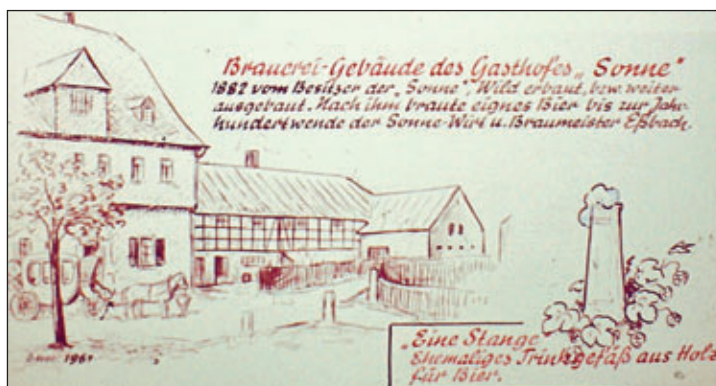 Brauerei-Gebäude des Gasthofes „Sonne"
1882 vom Besitzer der „Sonne", Wild erbaut, bzw. weiter
ausgebaut. Nach ihm braute eignes Bier bis zur Jahr-
hundertwende der Sonne-Wirt u. Braumeister Eßbach.
„Eine Stange
Ehemaliges Trinkgefäß aus Holz
für Bier.
1961